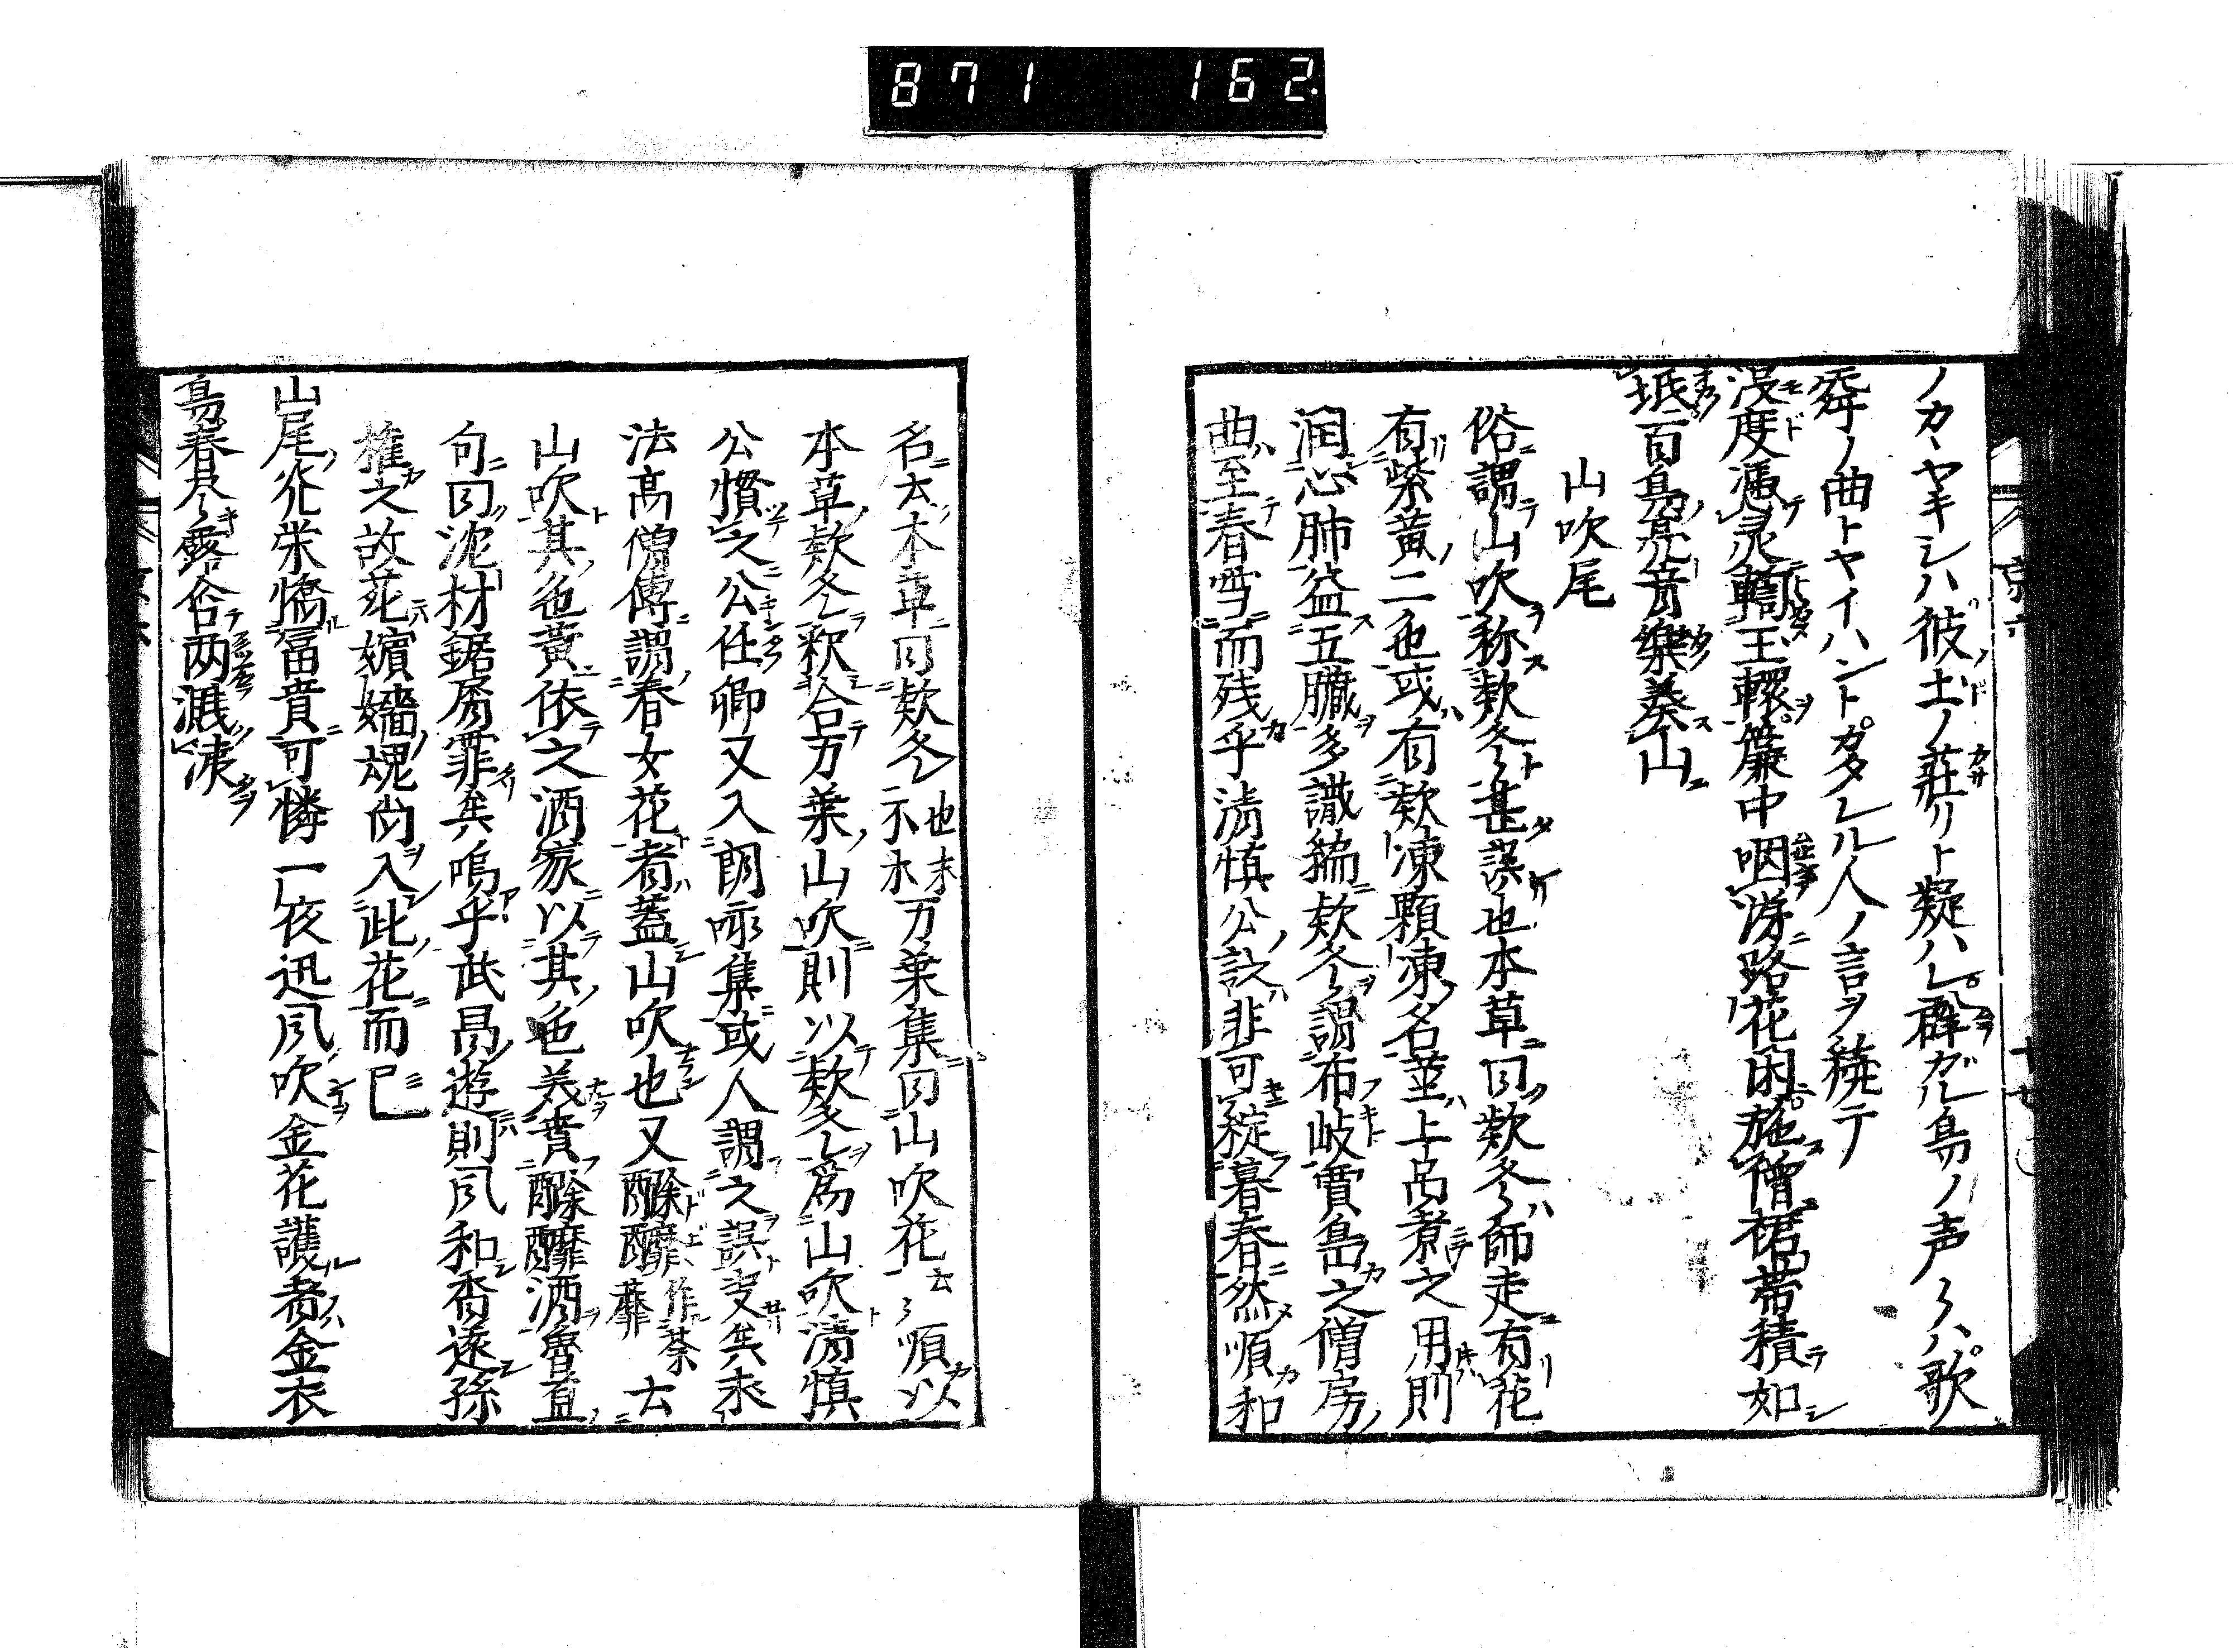 871 162.
ノカヽヤキシハ彼土ノ莊リト疑ハレ群ガル鳥ノ声々ハ歌
舞ノ曲トヤイハントガタレル人ノ言ヲ競テ
没度憑灵轎玉轅簾中咽游路花困施僧裙帯積如
坻百鳥是音樂葵山
山吹尾
俗謂山吹称欵冬甚誤也本草曰欵冬師走有花
有紫黄二色或有欵凍顆凍名並上品煮之用則
潤心肺益五臓多識編欵冬謂布岐賈島之僧房
曲至春雪而残乎清慎公詠非可綻暮春然順和
名云本草曰欵冬也末不木万葉集曰山吹花云々順以
本草欵冬釈合万葉山吹則以欵冬爲山吹清慎
公慣之公任卿又入朗詠集或人謂之誤支矣未
法高僧傳謂春女花者蓋山吹也又酴醿作荼蘼云
山吹其色黄依之酒家以其色美賣酴醿酒魯直
句曰沈材鋸屑罪矣嗚乎武昌遊則風和香逐孫
權之故苑嬪嬙魂尚入此花而已
山尾花栄憍冨貴可憐一夜迅風吹金花護者金衣
鳥春尽露含两濺洟